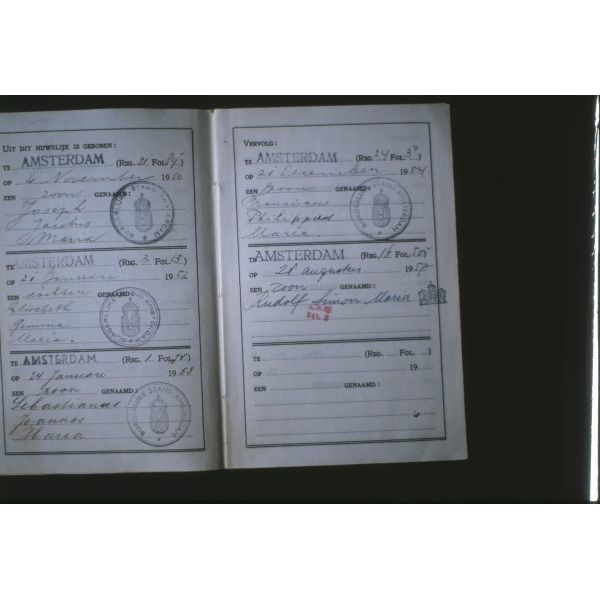 UIT DIT HUWELIJK IS GEBOREN:
TE AMSTERDAM (REG. 21 FOL. 89)
OP 4 November 1950
EEN zoon GENAAMD:
Joseph
Jacobus
Maria
TE AMSTERDAM (REG. 3 FOL. 15)
OP 21 Januari 1952
EEN dochter GENAAMD:
Elisabeth
Gemma
Maria.
TE AMSTERDAM (REG. 1 FOL.)
OP 24 Januari 1953
EEN zoon GENAAMD:
Sebastianus
Joannes
Maria
VERVOLG:
TE AMSTERDAM (REG. 24 FOL. 3)
OP 21 December 1954
EEN zoon GENAAMD:
Franciscus
Philippus
Maria.
TE AMSTERDAM (REG. FOL.)
OP 28 augustus 195
EEN zoon GENAAMD:
Rudolf Simon Maria
TE (REG. FOL. )
OP 19
EEN GENAAMD: